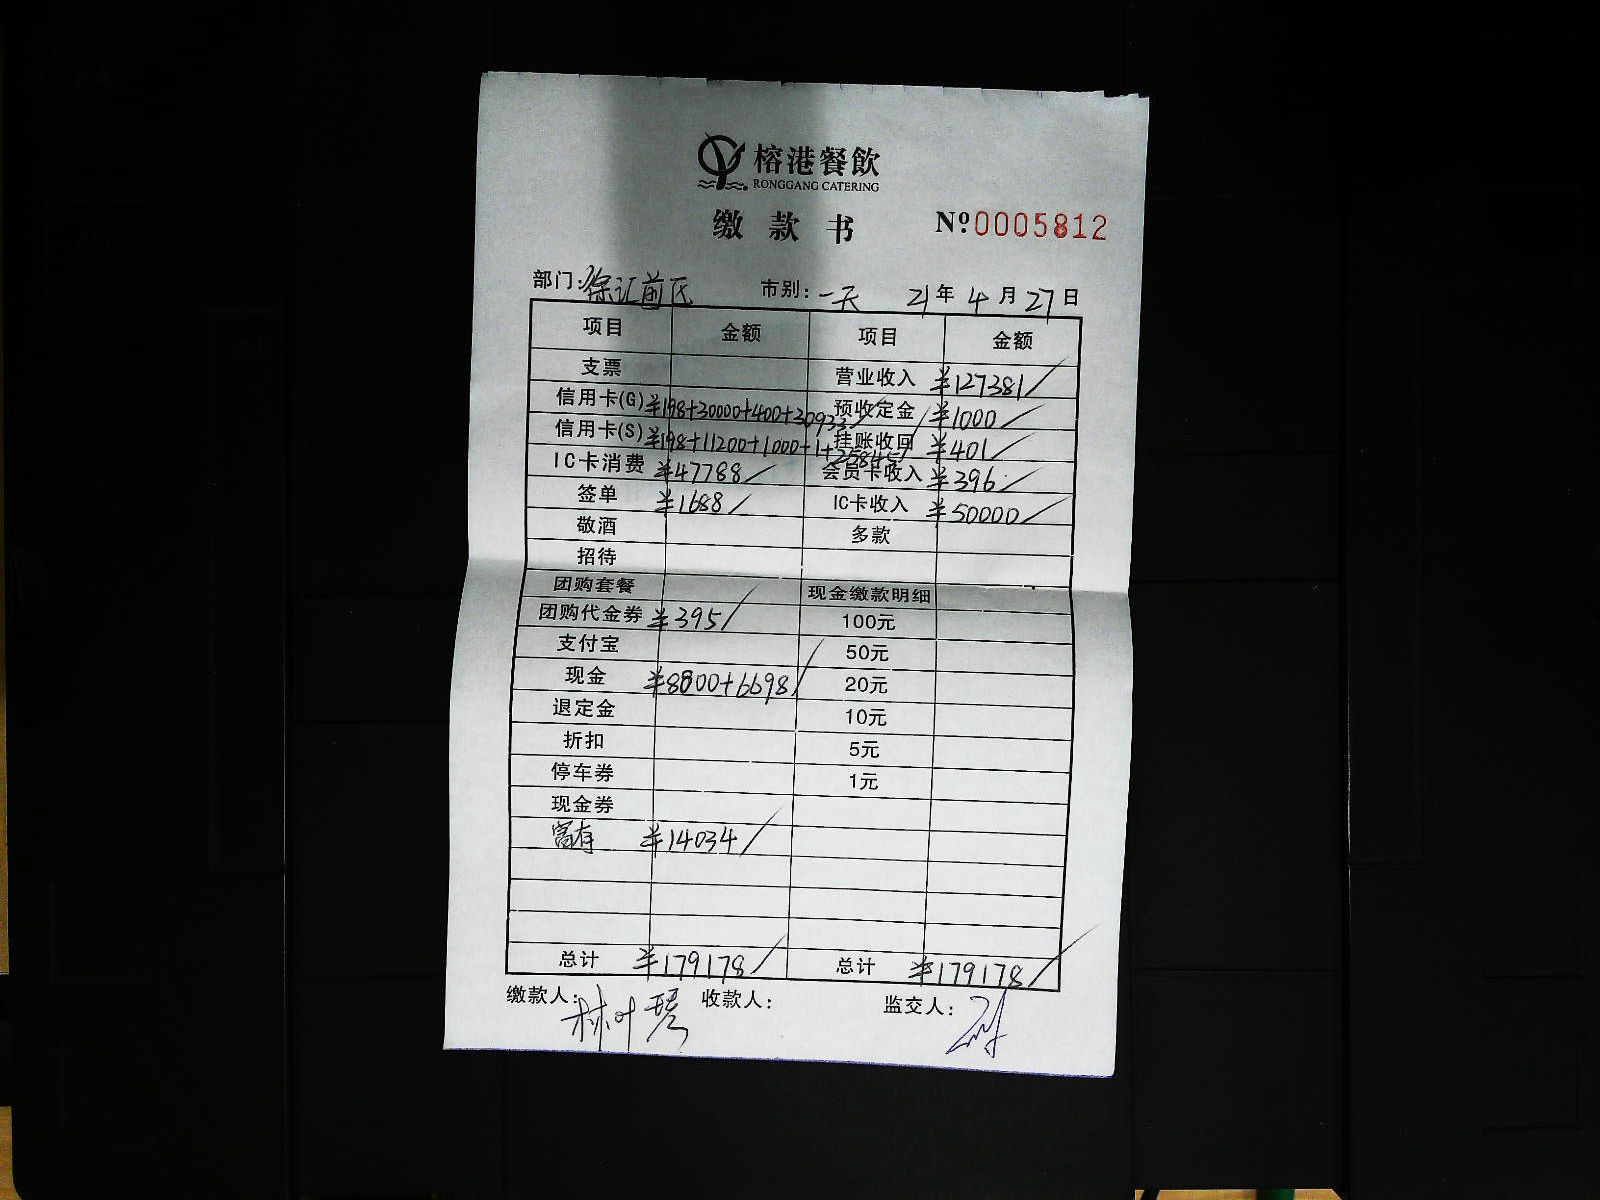 榕港餐飲
RONGGANG CATERING
缴款书 №0005812
部门:徐汇前区 市别:一天 21年4月27日
项目 金额 项目 金额
支票 营业收入 ¥127381
信用卡(G) ¥198+30000+400+30933 预收定金 ¥1000
信用卡(S) ¥198+11200+1000+1+25845 挂账收回 ¥401
IC卡消费 ¥47788 会员卡收入 ¥396
签单 ¥1688 IC卡收入 ¥50000
敬酒 多款
招待
团购套餐 现金缴款明细
团购代金券 ¥395 100元
支付宝 50元
现金 ¥8800+6698 20元
退定金 10元
折扣 5元
停车券 1元
现金券
富有 ¥14034
总计 ¥179178 总计 ¥179178
缴款人:林叶琴 收款人: 监交人: